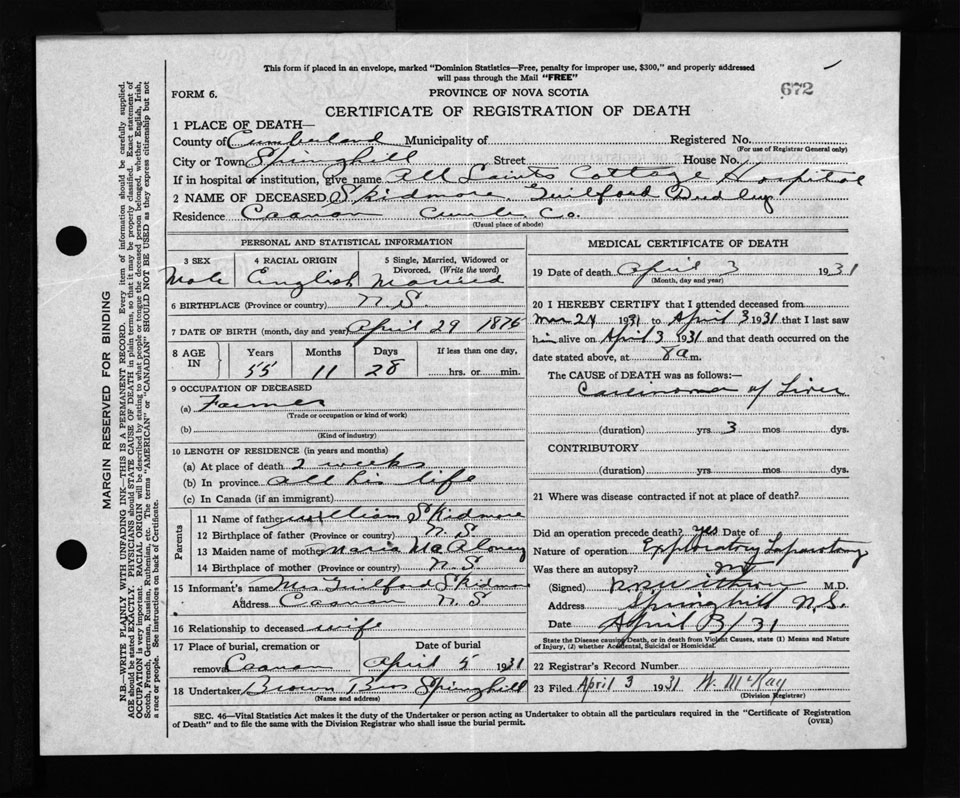 This form if placed in an envelope, marked "Dominion Statistics—Free, penalty for improper use, $300," and properly addressed
will pass through the Mail "FREE"
672
FORM 6.
PROVINCE OF NOVA SCOTIA
CERTIFICATE OF REGISTRATION OF DEATH
1 PLACE OF DEATH—
County of Cumberland Municipality of Registered No.
(For use of Registrar General only)
City or Town Springhill Street House No.
If in hospital or institution, give name All Saints Cottage Hospital
2 NAME OF DECEASED Skidmore, Guilford Dudley
Residence Canaan Cumb. Co.
(Usual place of abode)
PERSONAL AND STATISTICAL INFORMATION
3 SEX 4 RACIAL ORIGIN 5 Single, Married, Widowed or
Divorced. (Write the word)
Male English Married
6 BIRTHPLACE (Province or country) N.S
7 DATE OF BIRTH (month, day and year) April 29 1875
8 AGE IN Years Months Days If less than one day,
55 11 28 hrs. or min.
9 OCCUPATION OF DECEASED
(a) Farmer
(Trade or occupation or kind of work)
(b)
(Kind of industry)
10 LENGTH OF RESIDENCE (in years and months)
(a) At place of death 2 weeks
(b) In province all his life
(c) In Canada (if an immigrant)
Parents
11 Name of father William Skidmore
12 Birthplace of father (Province or country) N.S.
13 Maiden name of mother Maria McAloney
14 Birthplace of mother (Province or country) N.S.
15 Informant's name Mrs Guilford Skidmore
Address Canaan N.S
16 Relationship to deceased wife
17 Place of burial, cremation or Date of burial
removal Canaan April 5 1931
18 Undertaker Brown Bros Springhill
(Name and address)
MEDICAL CERTIFICATE OF DEATH
19 Date of death April 3 1931
(Month, day and year)
20 I HEREBY CERTIFY that I attended deceased from
Mar 24 1931 to April 3 1931 that I last saw
him alive on April 3 1931 and that death occurred on the
date stated above, at 8 a m.
The CAUSE of DEATH was as follows:—
Carcinoma of Liver
(duration) yrs 3 mos dys.
CONTRIBUTORY
(duration) yrs. mos dys.
21 Where was disease contracted if not at place of death?
Did an operation precede death? yes Date of
Nature of operation Exploratory Laparotomy
Was there an autopsy? no
(Signed) Withrow M.D.
Address Springhill N.S.
Date April 3/31
State the Disease causing Death, or in death from Violent Causes, state (1) Means and Nature
of Injury, (2) whether Accidental, Suicidal or Homicidal.
22 Registrar's Record Number
23 Filed April 3 1931 W. McKay
(Division Registrar)
SEC. 46—Vital Statistics Act makes it the duty of the Undertaker or person acting as Undertaker to obtain all the particulars required in the "Certificate of Registration
of Death" and to file the same with the Division Registrar who shall issue the burial permit. (OVER)
MARGIN RESERVED FOR BINDING
N.B.—WRITE PLAINLY WITH UNFADING INK—THIS IS A PERMANENT RECORD. Every item of information should be carefully supplied.
AGE should be stated EXACTLY. PHYSICIANS should STATE CAUSE OF DEATH in plain terms, so that it may be properly classified. Exact statement of
OCCUPATION is very important. RACIAL ORIGIN will be described by stating to what people or tongue the deceased person belonged, whether English, Irish,
Scotch, French, German, Russian, Ruthenian, etc. The terms "AMERICAN" or "CANADIAN" SHOULD NOT BE USED as they express citizenship but not
a race or people. See instructions on back of Certificate.